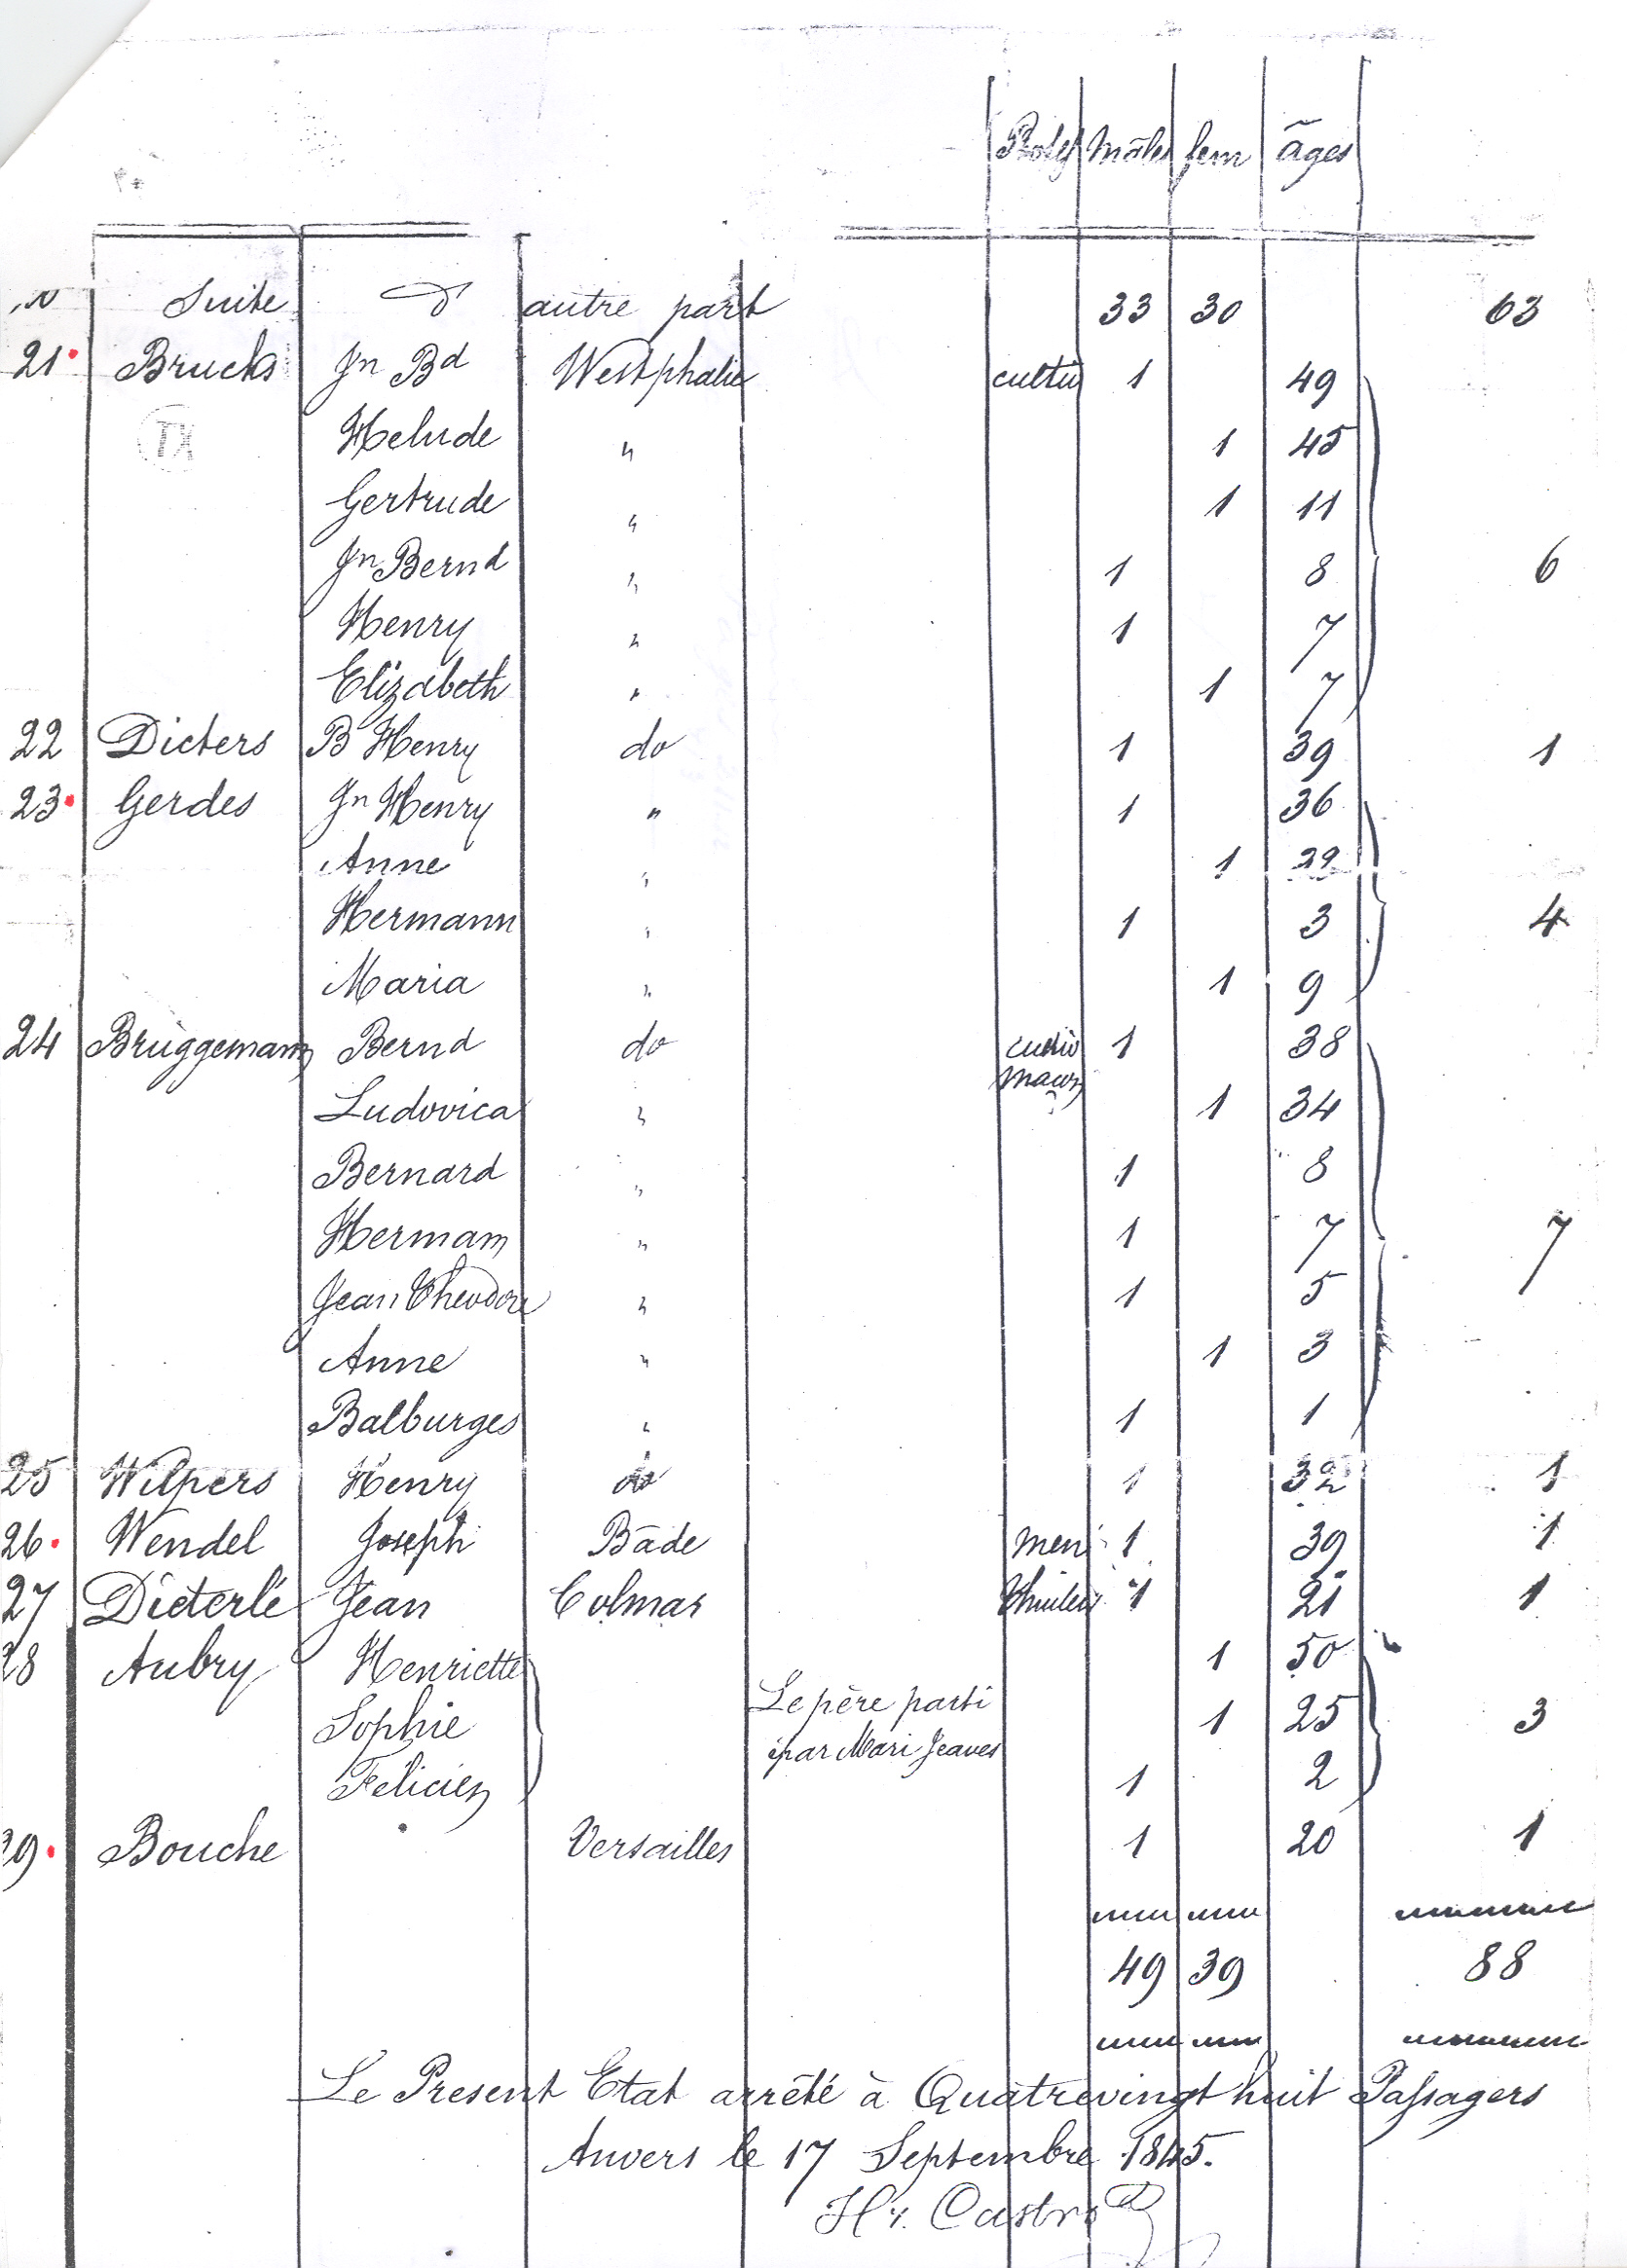 mâles fem âges
N Suite d' autre part 33 30 63
21 Brucks Jn Bd Westphalie cultiv 1 49
TX
Helude " 1 45
Gertrude " 1 11
Jn Bernd " 1 8 6
Henry " 1 7
Elizabeth " 1 7
22 Dieters B Henry do 1 39 1
23 Gerdes Jn Henry " 1 36
Anne " 1 29
Hermann " 1 3 4
Maria " 1 9
24 Brüggemann Bernd do 1 38
maçon
Ludovica " 1 34
Bernard " 1 8
Hermann " 1 7 7
Jean Theodore " 1 5
Anne " 1 3
Balburges " 1 1
25 Wilpers Henry do 1 32 1
26 Wendel Joseph Bade men 1 39 1
27 Dieterlé Jean Colmar 1 21 1
28 Aubry Henriette 1 50
Le père parti
Sophie 1 25 3
par Mari Jeaves
Félicien 1 2
29 Bouche Versailles 1 20 1
49 39 88
Le Present Etat arrêté à Quatrevingt huit Passagers
Anvers le 17 Septembre 1845.
Hy. Castro